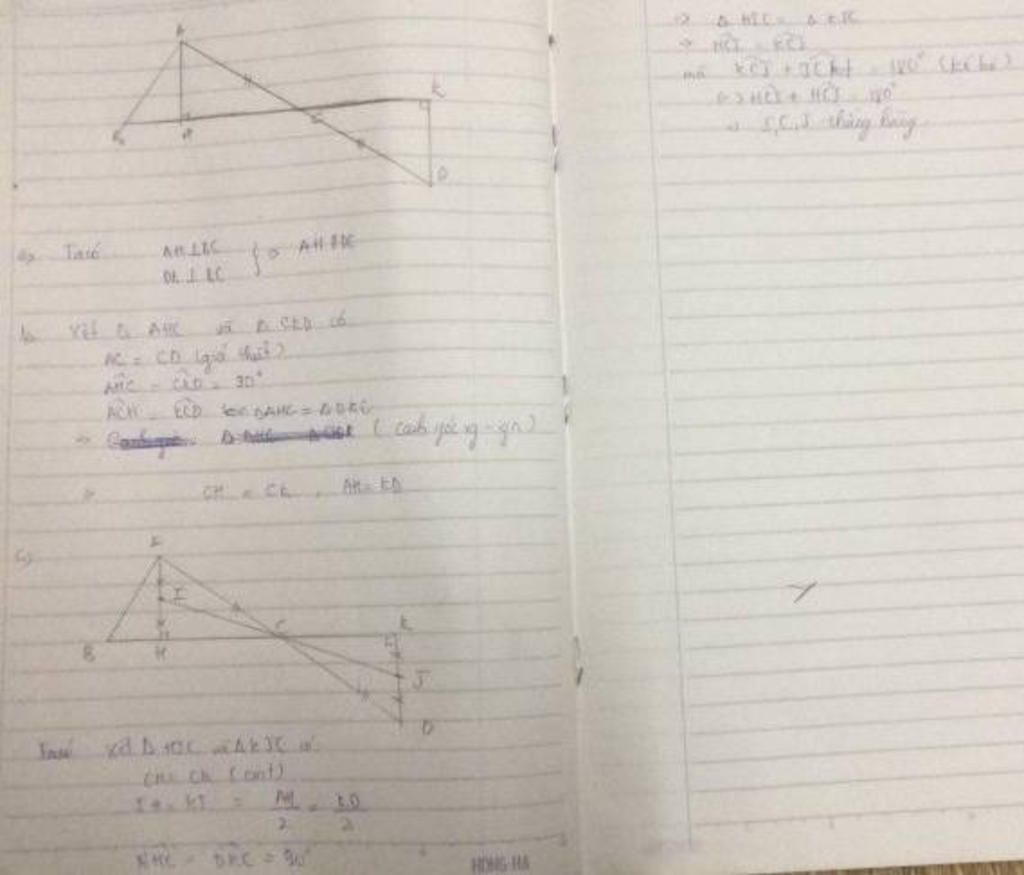 A
B
H
C
K
D
a, Ta có AH ⊥ BC
DK ⊥ BC
} => AH // DK
b, Xét Δ AHC và Δ CKD có
AC = CD (giả thiết)
AHC = CKD = 90°
ACH = KCD => ΔAHC = ΔDKC
=> (cạnh góc vg - gn)
=> CH = CK, AH = KD
c,
A
I
B
H
C
K
J
D
Ta có xét Δ HIC và Δ KJC có
CH = CK (cmt)
IH = KJ = AH/2 = KD/2
AHC = DKC = 90°
HONG HA
=> Δ HIC = Δ KJC
=> HCI = KCJ
mà KCJ + JCH = 180° (kề bù)
<=> HCI + HCJ = 180°
=> I, C, J thẳng hàng